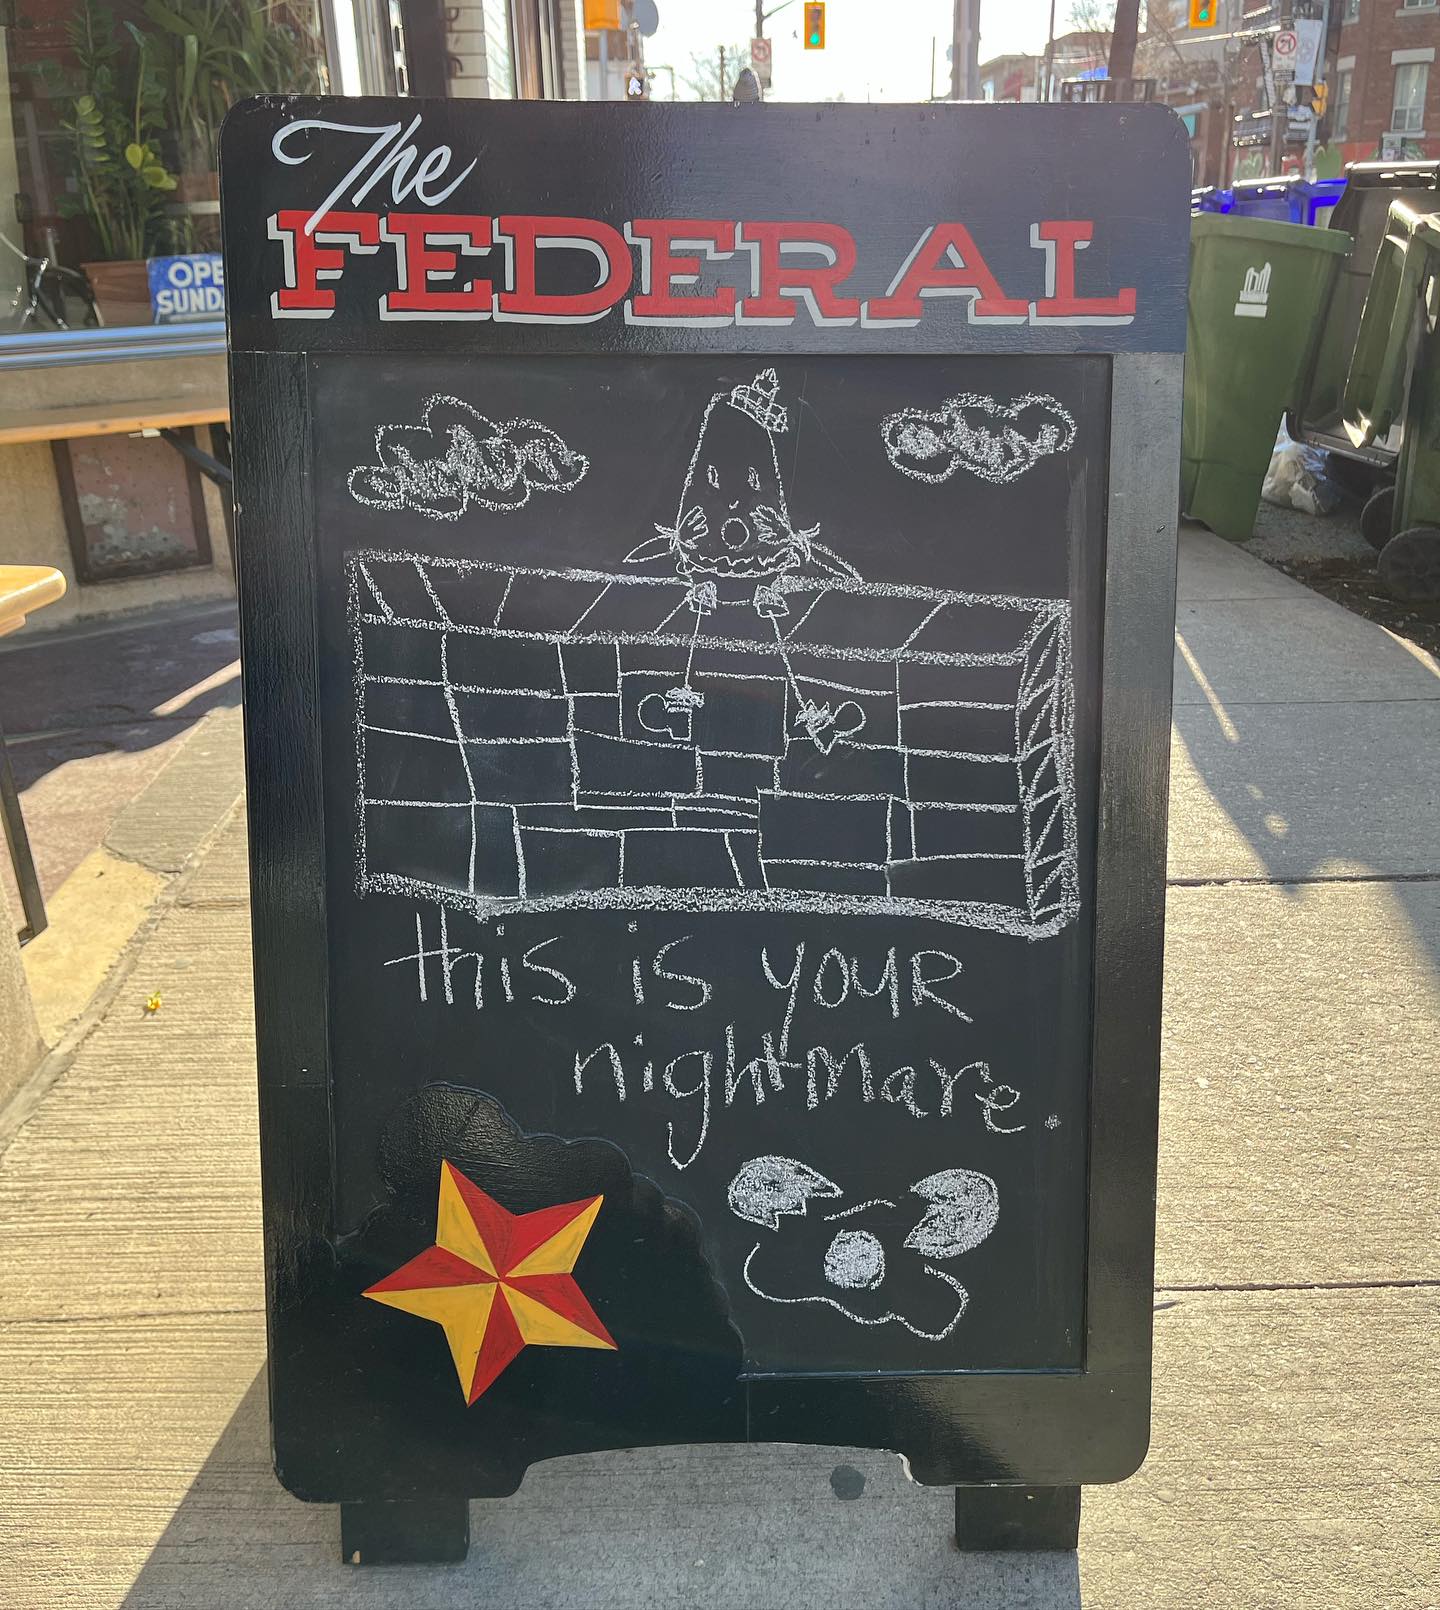 The
FEDERAL
OPE
SUNDA
this is youR
nightmare.